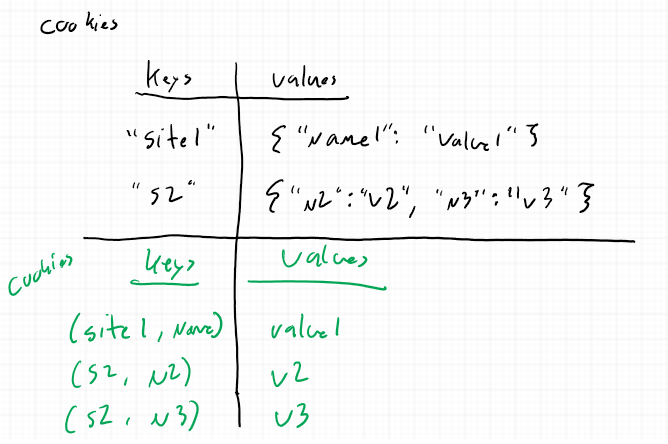 cookies
keys values
"site1" {"Name1": "Value1"}
"S2" {"N2":"V2", "N3":"V3"}
cookies keys values
(site1, Name) value1
(S2, N2) v2
(S2, N3) v3